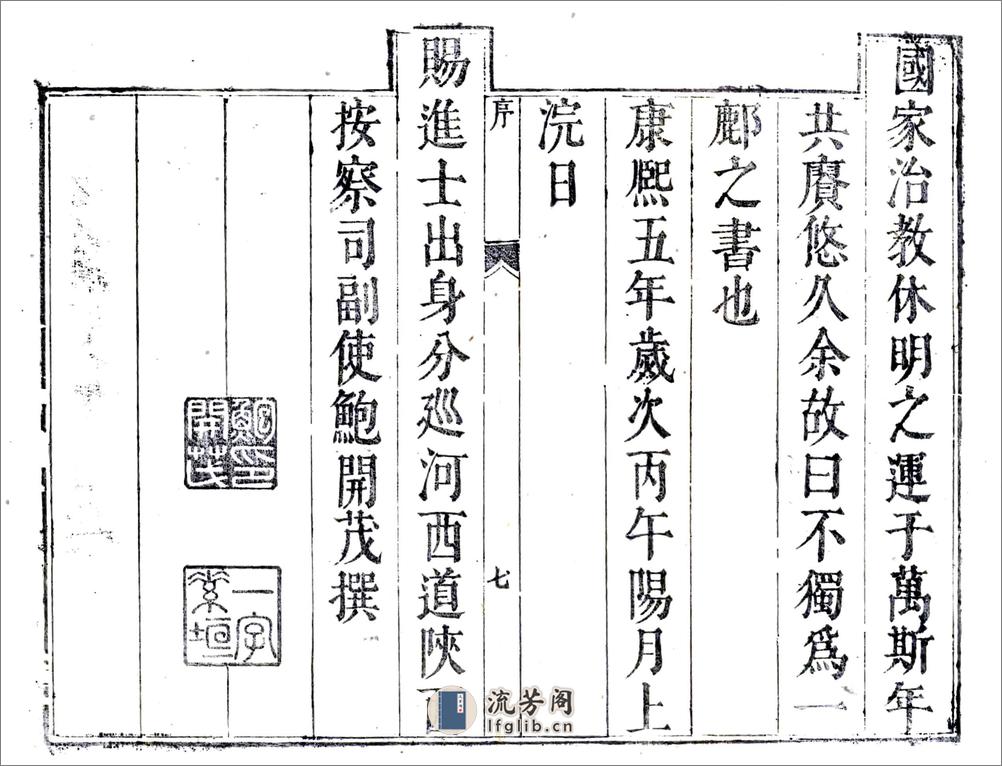 國家治教休明之運于萬斯年
共賡悠久余故曰不獨爲一
鄜之書也
康熙五年歲次丙午陽月上
浣日
序
七
賜進士出身分巡河西道陝
按察司副使鮑開茂撰
鮑開茂印
一字素垣
流芳阁
lfglib.cn